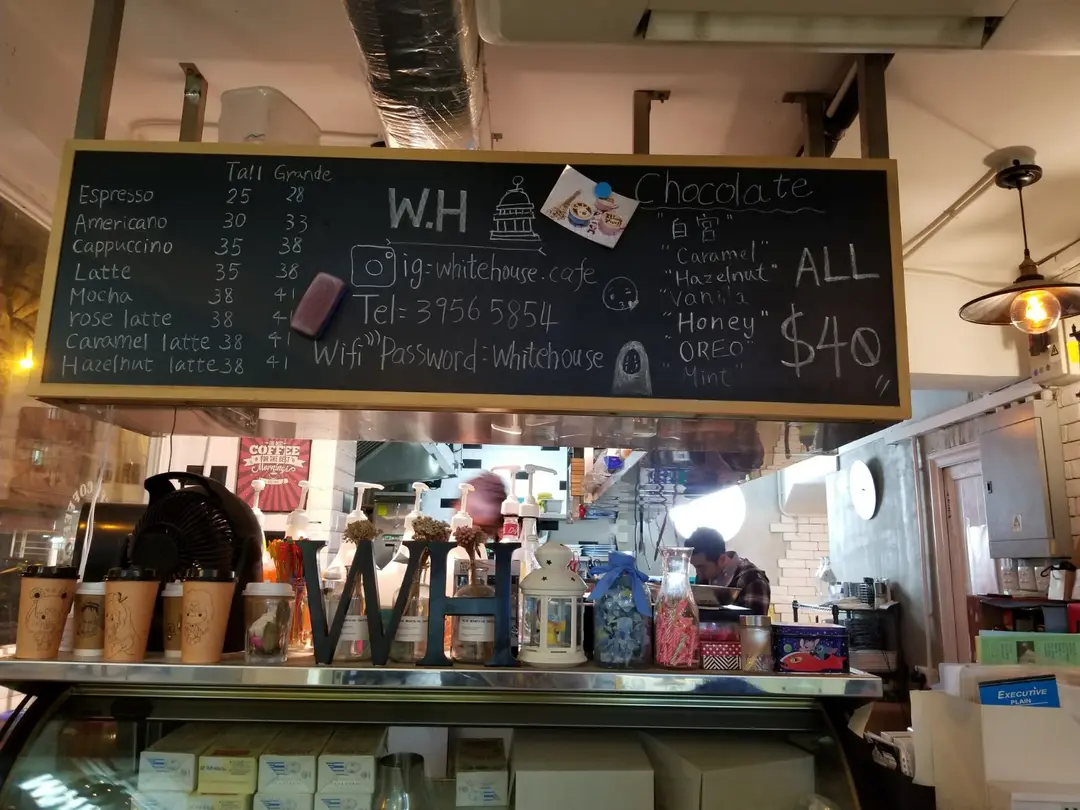 Tall Grande
Espresso 25 28
Americano 30 33
Cappuccino 35 38
Latte 35 38
Mocha 38 41
rose latte 38 41
Caramel latte 38 41
Hazelnut latte 38 41
W.H
ig=whitehouse.cafe
Tel= 3956 5854
Wifi Password=Whitehouse
Chocolate
"白宮"
"Caramel"
"Hazelnut"
"Vanilla"
"Honey"
"OREO"
"Mint"
ALL
$40
COFFEE
Mornings
WH
EXECUTIVE
PLAIN